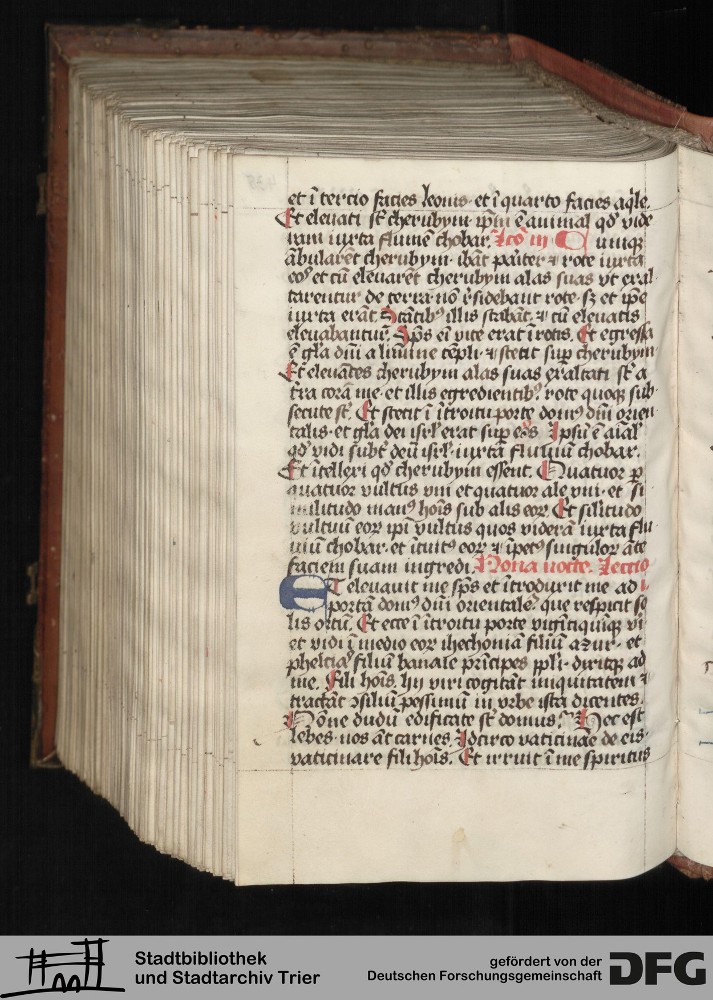 et ī tercio facies leonis · et ī quarto facies aq̄le.
Et eleuati st̄ cherubym · ip̄m ē animal qd̓ vide
ram iuxta flumē chobar. Lc̄o iii Cumq̨
ābularēt cherubym · ibāt pariter ⁊ rote iuxta
eos et cū eleuarēt cherubym alas suas vt exal
tarentur de terra · nō r̄sidebant rote · sꝫ et ip̄e
iuxta erāt. Stātibꝰ illis stabāt · ⁊ cū eleuatis
eleuabantur. Sp̄s ei vite erat ī rotis. Et egressa
ē gl̄a dn̄i a limine tēpli · ⁊ stetit sup̄ cherubym
Et eleuātes cherubym alas suas exaltati st̄ a
t̄ra corā me · et illis egredientibꝰ · rote quoqꝫ sub
secute st̄. Et stetit ī ītroitu porte domꝰ dn̄i orien
talis · et gl̄a dei isrl̄ erat sup̄ eos Ipsū ē aīal
qd̓ vidi subt̓ deū isrl̄ · iuxta fluuiū chobar.
Et ītellexi qd̓ cherubym essent. Quatuor p̱
quatuor vultus vni et quatuor ale vni · et si
militudo manꝰ hoīs sub alis eoꝝ Et silitudo
vultuū eoꝝ ip̄i vultus quos viderā iuxta flu
uiū chobar · et ītuitꝰ eoꝝ ⁊ īpetꝰ singuloꝝ āte
faciem suam ingredi. Nona nocte. Lectio
ET eleuauit me sp̄s et ītroduxit me ad i
portā domꝰ dn̄i orientalē · que respicit so
lis ortū. Et ecce ī ītroitu porte viginti quiq̨ vi
et vidi ī medio eoꝝ ihechoniā filiū azur · et
pheltiā filiū banaie prīcipes ppl̄i · dixitqꝫ ad
me. Fili hoīs · hii viri cogitāt iniquitatem ⁊
tractāt ↄsiliū pessimū in vrbe ista dicentes.
Nōne dudū edificate st̄ domus. Hec est
lebes · nos āt carnes. Idcirco vaticinare de eis ·
vaticinare fili hoīs. Et irruit ī me spiritus
Stadtbibliothek
und Stadtarchiv Trier
gefördert von der
Deutschen Forschungsgemeinschaft
DFG